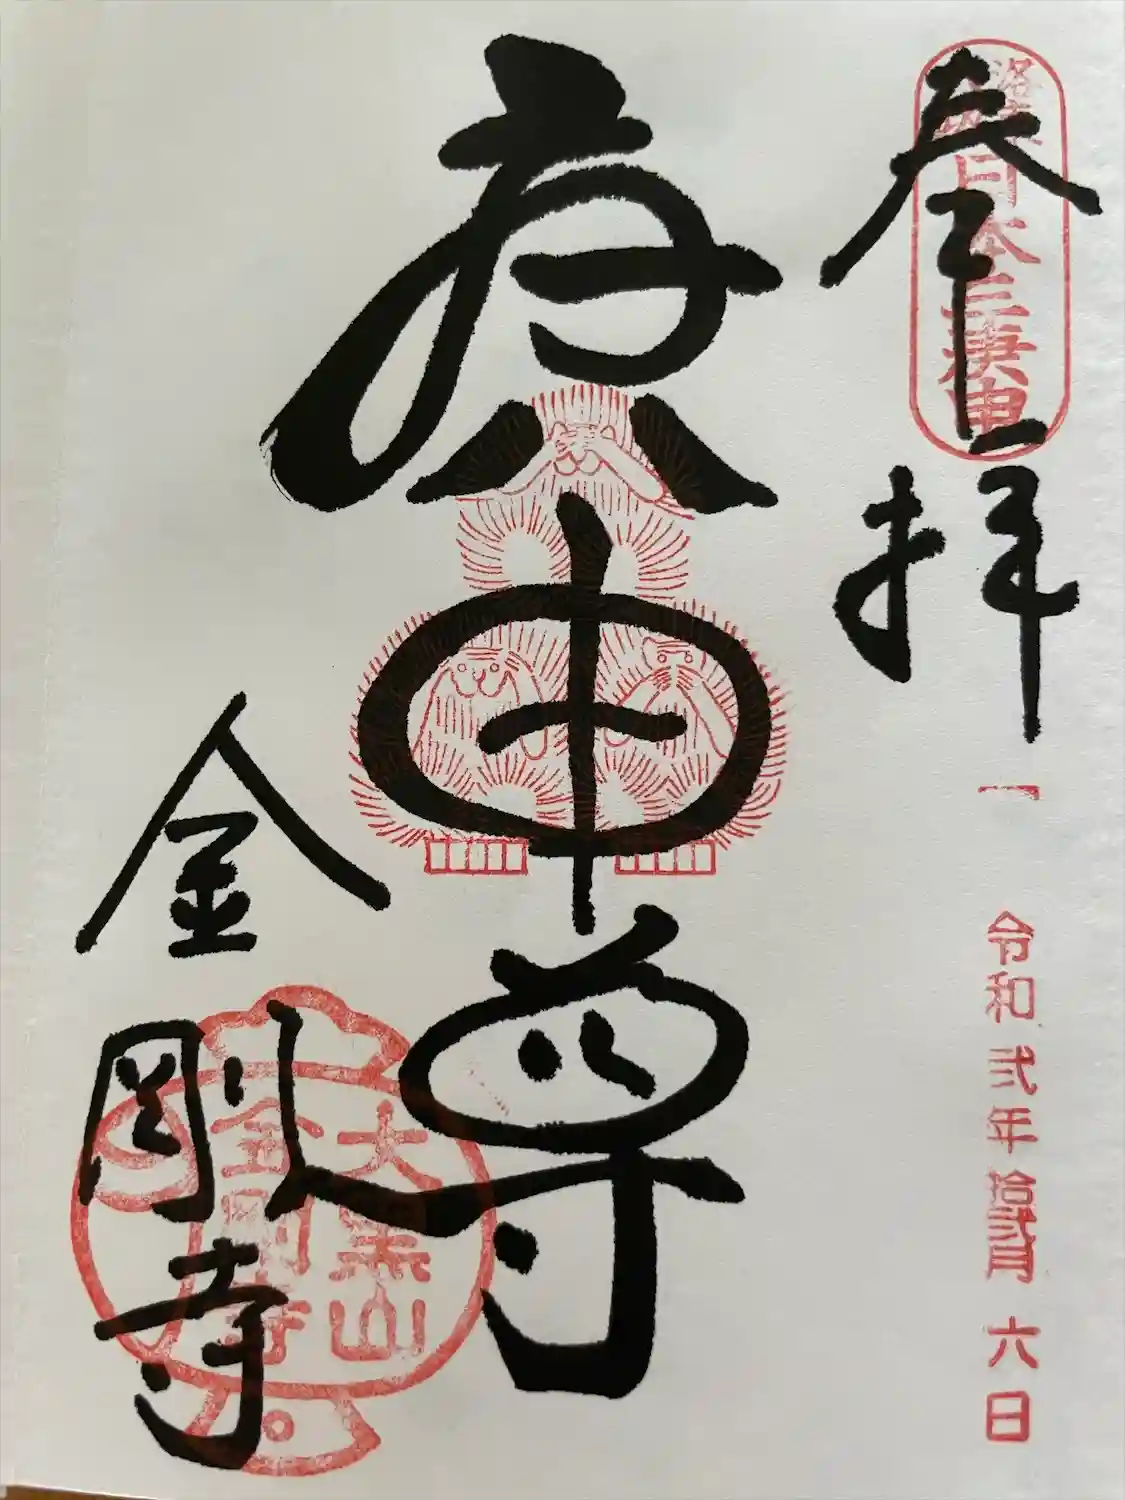 奉拝
洛東
日本三庚申
令和弐年拾弐月六日
庚申尊
金剛寺
大黒山
金剛寺